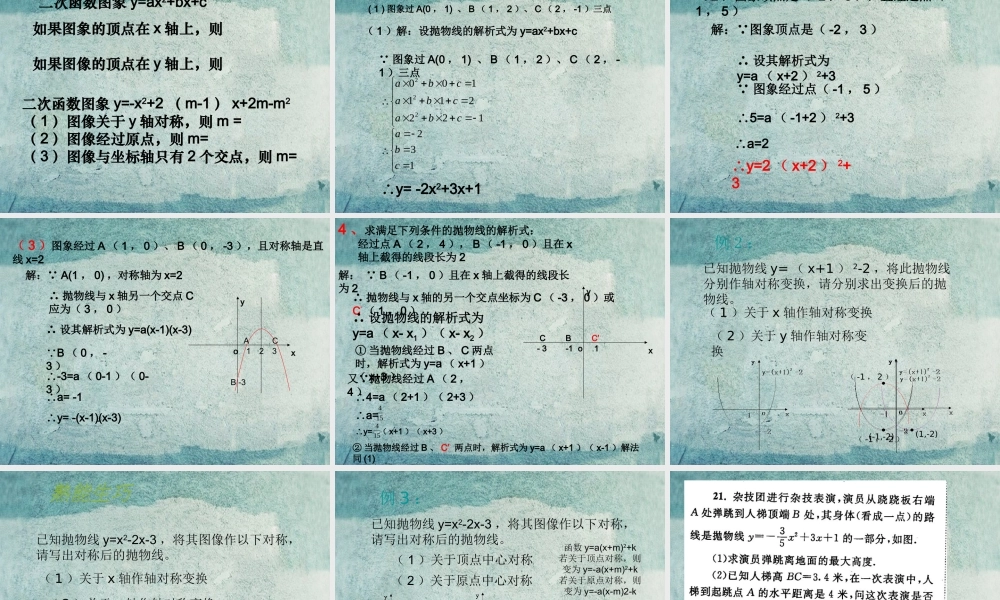 二次函数图象 y=ax²+bx+c
如果图象的顶点在 x 轴上，则
如果图像的顶点在 y 轴上，则
二次函数图象 y=-x²+2 （ m-1 ） x+2m-m²
（ 1 ）图像关于 y 轴对称，则 m =
（ 2 ）图像经过原点，则 m=
（ 3 ）图像与坐标轴只有 2 个交点，则 m=
( 1 ) 图象过 A(0 ， 1) 、 B （ 1 ， 2 ）、 C （ 2 ， -1 ）三点
（ 1 ）解：设抛物线的解析式为 y=ax²+bx+c
∵ 图象过 A(0 ， 1) 、 B （ 1 ， 2 ）、 C （ 2 ， -
1 ）三点
a×0²+b×0+c=1
∴ a×1²+b×1+c=2
a×2²+b×2+c=-1
a=-2
∴ b=3
c=1
∴y= -2x²+3x+1
1 ， 5 ）
解：∵图象顶点是（ -2 ， 3 ）
∴ 设其解析式为
y=a （ x+2 ） ²+3
∵ 图象经过点（ -1 ， 5 ）
∴5=a （ -1+2 ） ²+3
∴a=2
∴y=2 （ x+2 ） ²+
3
（ 3 ）图象经过 A （ 1 ， 0 ）、 B （ 0 ， -3 ），且对称轴是直
线 x=2
解：∵ A(1 ， 0) ，对称轴为 x=2
∴ 抛物线与 x 轴另一个交点 C
应为（ 3 ， 0 ）
∴ 设其解析式为 y=a(x-1)(x-3)
∵B （ 0 ， -
3 ）
∴-3=a （ 0-1 ）（ 0-
3 ）
∴a= -1
∴y= -(x-1)(x-3)
y
A C
o 1 2 3 x
B -3
4 、求满足下列条件的抛物线的解析式:
经过点 A （ 2 ， 4 ）， B （ -1 ， 0 ）且在 x
轴上截得的线段长为 2
解： ∵ B （ -1 ， 0 ）且在 x 轴上截得的线段长
为 2
∴ 抛物线与 x 轴的另一个交点坐标为 C （ -3 ， 0 ）或
C （ 1 ， 0 ）
∴ 设抛物线的解析式为
y=a （ x- x₁ ）（ x- x₂ ）
① 当抛物线经过 B 、 C 两点
时，解析式为 y=a （ x+1 ）
又∵抛物线经过 A （ 2 ，
4 ）
∴4=a （ 2+1 ）（ 2+3 ）
∴a=4/15
∴y=4/15（ x+1 ）（ x+3 ）
② 当抛物线经过 B 、 C′ 两点时，解析式为 y=a （ x+1 ）（ x-1 ）解法
同 (1)
y
C B C′
- 3 -1 o 1 x
例 2：
已知抛物线 y= （ x+1 ） ²-2 ，将此抛物线
分别作轴对称变换，请分别求出变换后的抛
物线。
（ 1 ）关于 x 轴作轴对称变换
（ 2 ）关于 y 轴作轴对称变
换
y
y=(x+1)²-2
-1 o x
-2
y
y=(x+1)²-2
（ -1 ， 2 ）
-1 o x
(1,-2)
已知抛物线 y=x²-2x-3 ，将其图像作以下对称，
请写出对称后的抛物线。
（ 1 ）关于 x 轴作轴对称变换
例 3：
已知抛物线 y=x²-2x-3 ，将其图像作以下对称，
请写出对称后的抛物线。
（ 1 ）关于顶点中心对称
（ 2 ）关于原点中心对称
函数 y=a(x+m)²+k
若关于顶点对称，则
变为 y=-a(x+m)²+k
若关于原点对称，则
变为 y=-a(x-m)2-k
y y
21. 杂技团进行杂技表演,演员从跷跷板右端
A 处弹跳到人梯顶端 B 处,其身体(看成一点)的路
线是抛物线 y=-3/5x²+3x+1 的一部分,如图.
(1)求演员弹跳离地面的最大高度.
(2)已知人梯高 BC=3.4 米,在一次表演中,人
梯到起跳点 A 的水平距离是 4 米,问这次表演是否